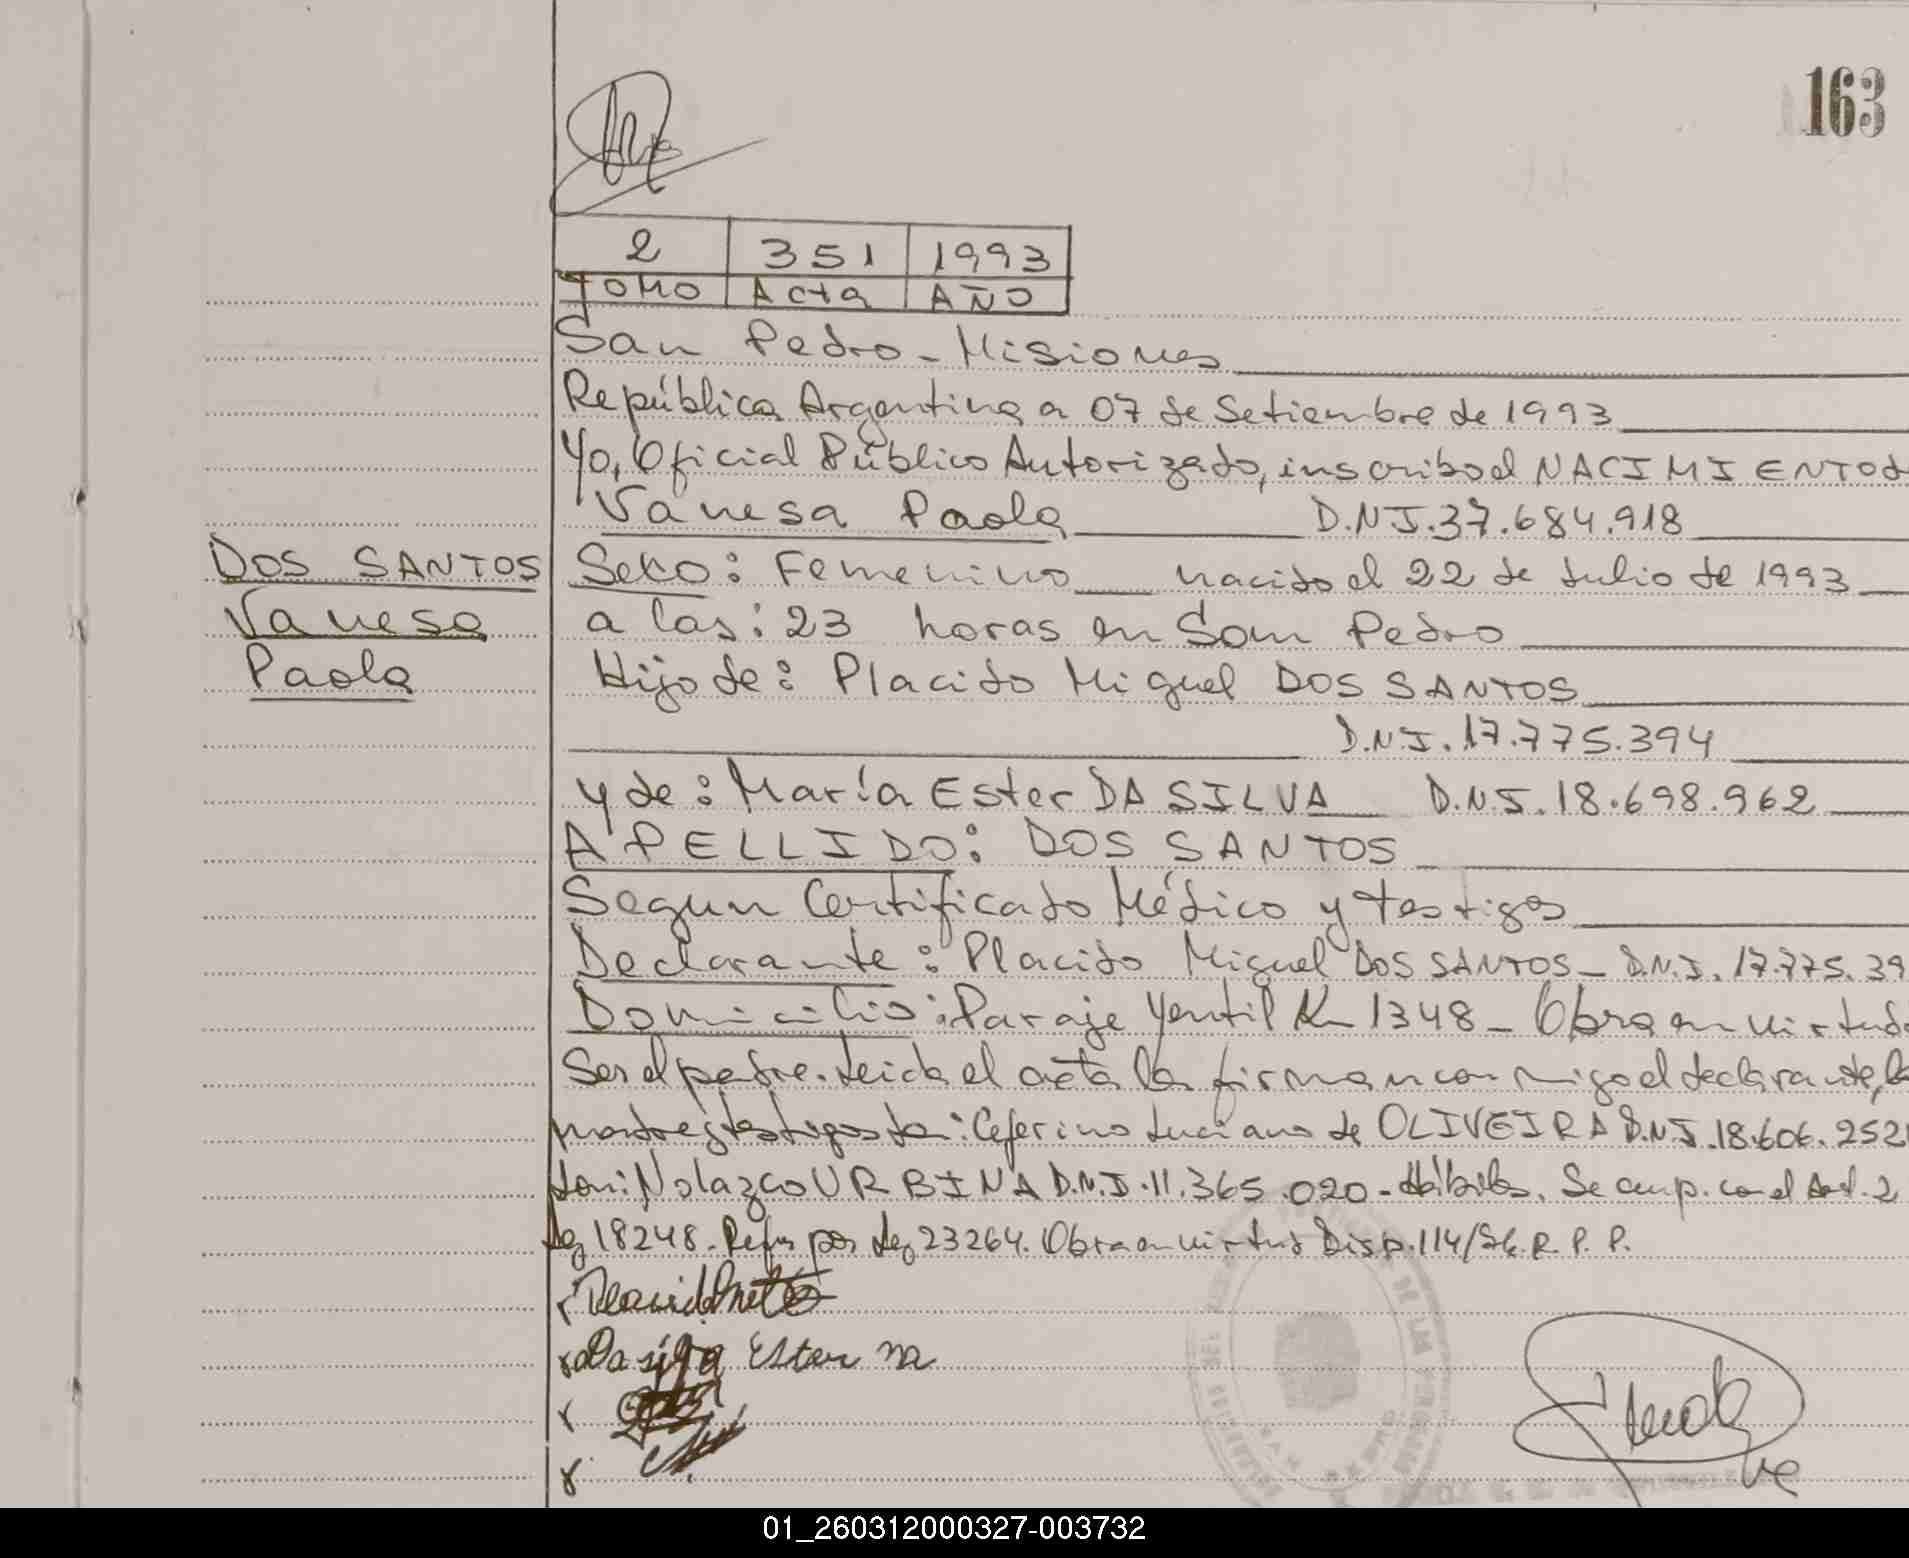 163
2 351 1993
Tomo Acta AÑO
San Pedro - Misiones
República Argentina a 07 de Setiembre de 1993
Yo, Oficial Público Autorizado, inscribo el NACIMIENTO d
Vanesa Paola D.N.I. 37.684.918
DOS SANTOS
Vanesa
Paola
Sexo: Femenino nacido el 22 de Julio de 1993
a las: 23 horas en San Pedro
Hijo de: Placido Miguel DOS SANTOS
D.N.I. 17.775.394
y de: María Ester DA SILVA D.N.I. 18.698.962
APELLIDO: DOS SANTOS
Segun Certificado Médico y testigos
Declarante: Placido Miguel DOS SANTOS - D.N.I. 17.775.39
Domicilio: Paraje Gentil Km 1348 - Obra en virtud
Ser el padre. Leida el acta la firman conmigo el declarante, la
madre y testigos Ceferino Luciano de OLIVEIRA D.N.I. 18.606.252
Nolazco URBINA D.N.I. 11.365.020 - Hábiles. Se cump. con el Art. 2
Ley 18248. Ref. por Ley 23264. Obra en virtud Disp. 114/ R. P. P.
Da silva Ester ma
01_260312000327-003732